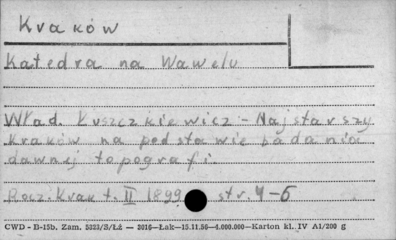 Kraków
Katedra na Wawelu
Wład. Łuszczkiewicz - Najstarszy
Kraków na podstawie badania
dawnej topografi.
Rocz. Krak t. II 1899 str. 4-5
CWD - B-15b. Zam. 5323/S/Łż — 2016—Łak—15.11.56—4.000.000—Karton kl. IV A1/200 g